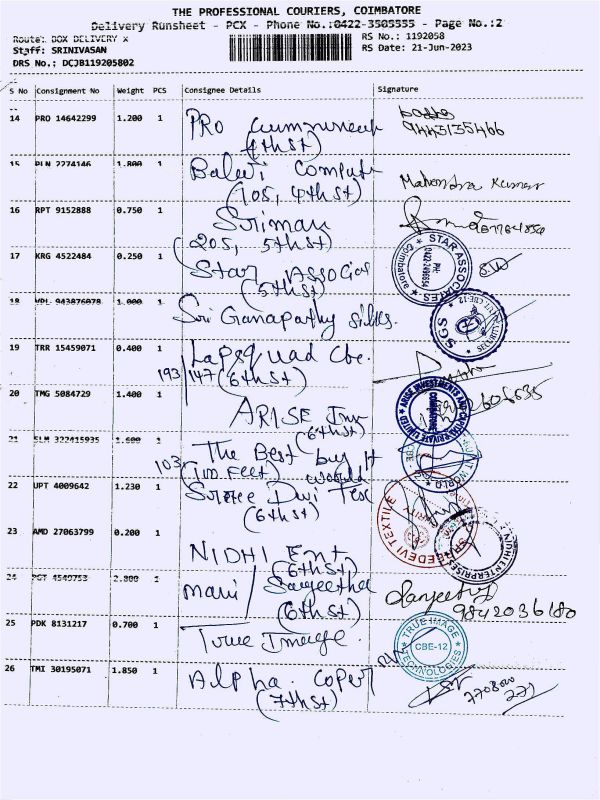 THE PROFESSIONAL COURIERS, COIMBATORE
Delivery Runsheet - PCX - Phone No.:0422-3505555 - Page No.:2
Route: BOX DELIVERY X
RS No.: 1192058
Staff: SRINIVASAN
RS Date: 21-Jun-2023
DRS No.: DCJB119205802
S No Consignment No Weight PCS Consignee Details Signature
14 PRO 14642299 1.200 1 PRO
(4th St) 9443135466
15 PLN 2274146 1.800 1 Balaji Compute
(105, 4th St) Mahendra Kumar
16 RPT 9152888 0.750 1 Sriman
(205, 5th St)
17 KRG 4522484 0.250 1 Star Associat
(5th St)
STAR ASSOCIATES
PH: 0422-2498654
Coimbatore
18 VPL 943876078 1.000 1 Sri Ganapathy Silks.
SGS
CBE-12
19 TRR 15459071 0.400 1 Lapsquad Cbe.
193/147 (6th St)
20 TMG 5084729 1.400 1 ARISE Inv
(6th St)
ARISE INVESTMENTS AND CAPITAL PRIVATE LIMITED
COIMBATORE
21 SLM 322415935 1.600 1 The Best buy It
103 (100 Feet) World
CBE
22 UPT 4009642 1.230 1 Sree Devi Tex
(6th St)
SREEDEVI TEXTILE
23 AMD 27063799 0.200 1 NIDHI Ent
(6th St)
NIDHI ENTERPRISES
24 PGT 4549753 2.800 1 mani/ Sangeetha
(6th St) 9842036180
25 PDK 8131217 0.700 1 True Image.
TRUE IMAGE
CBE-12
TECHNOLOGIES
26 TMI 30195071 1.850 1 Alpha. Coper
(7th St)